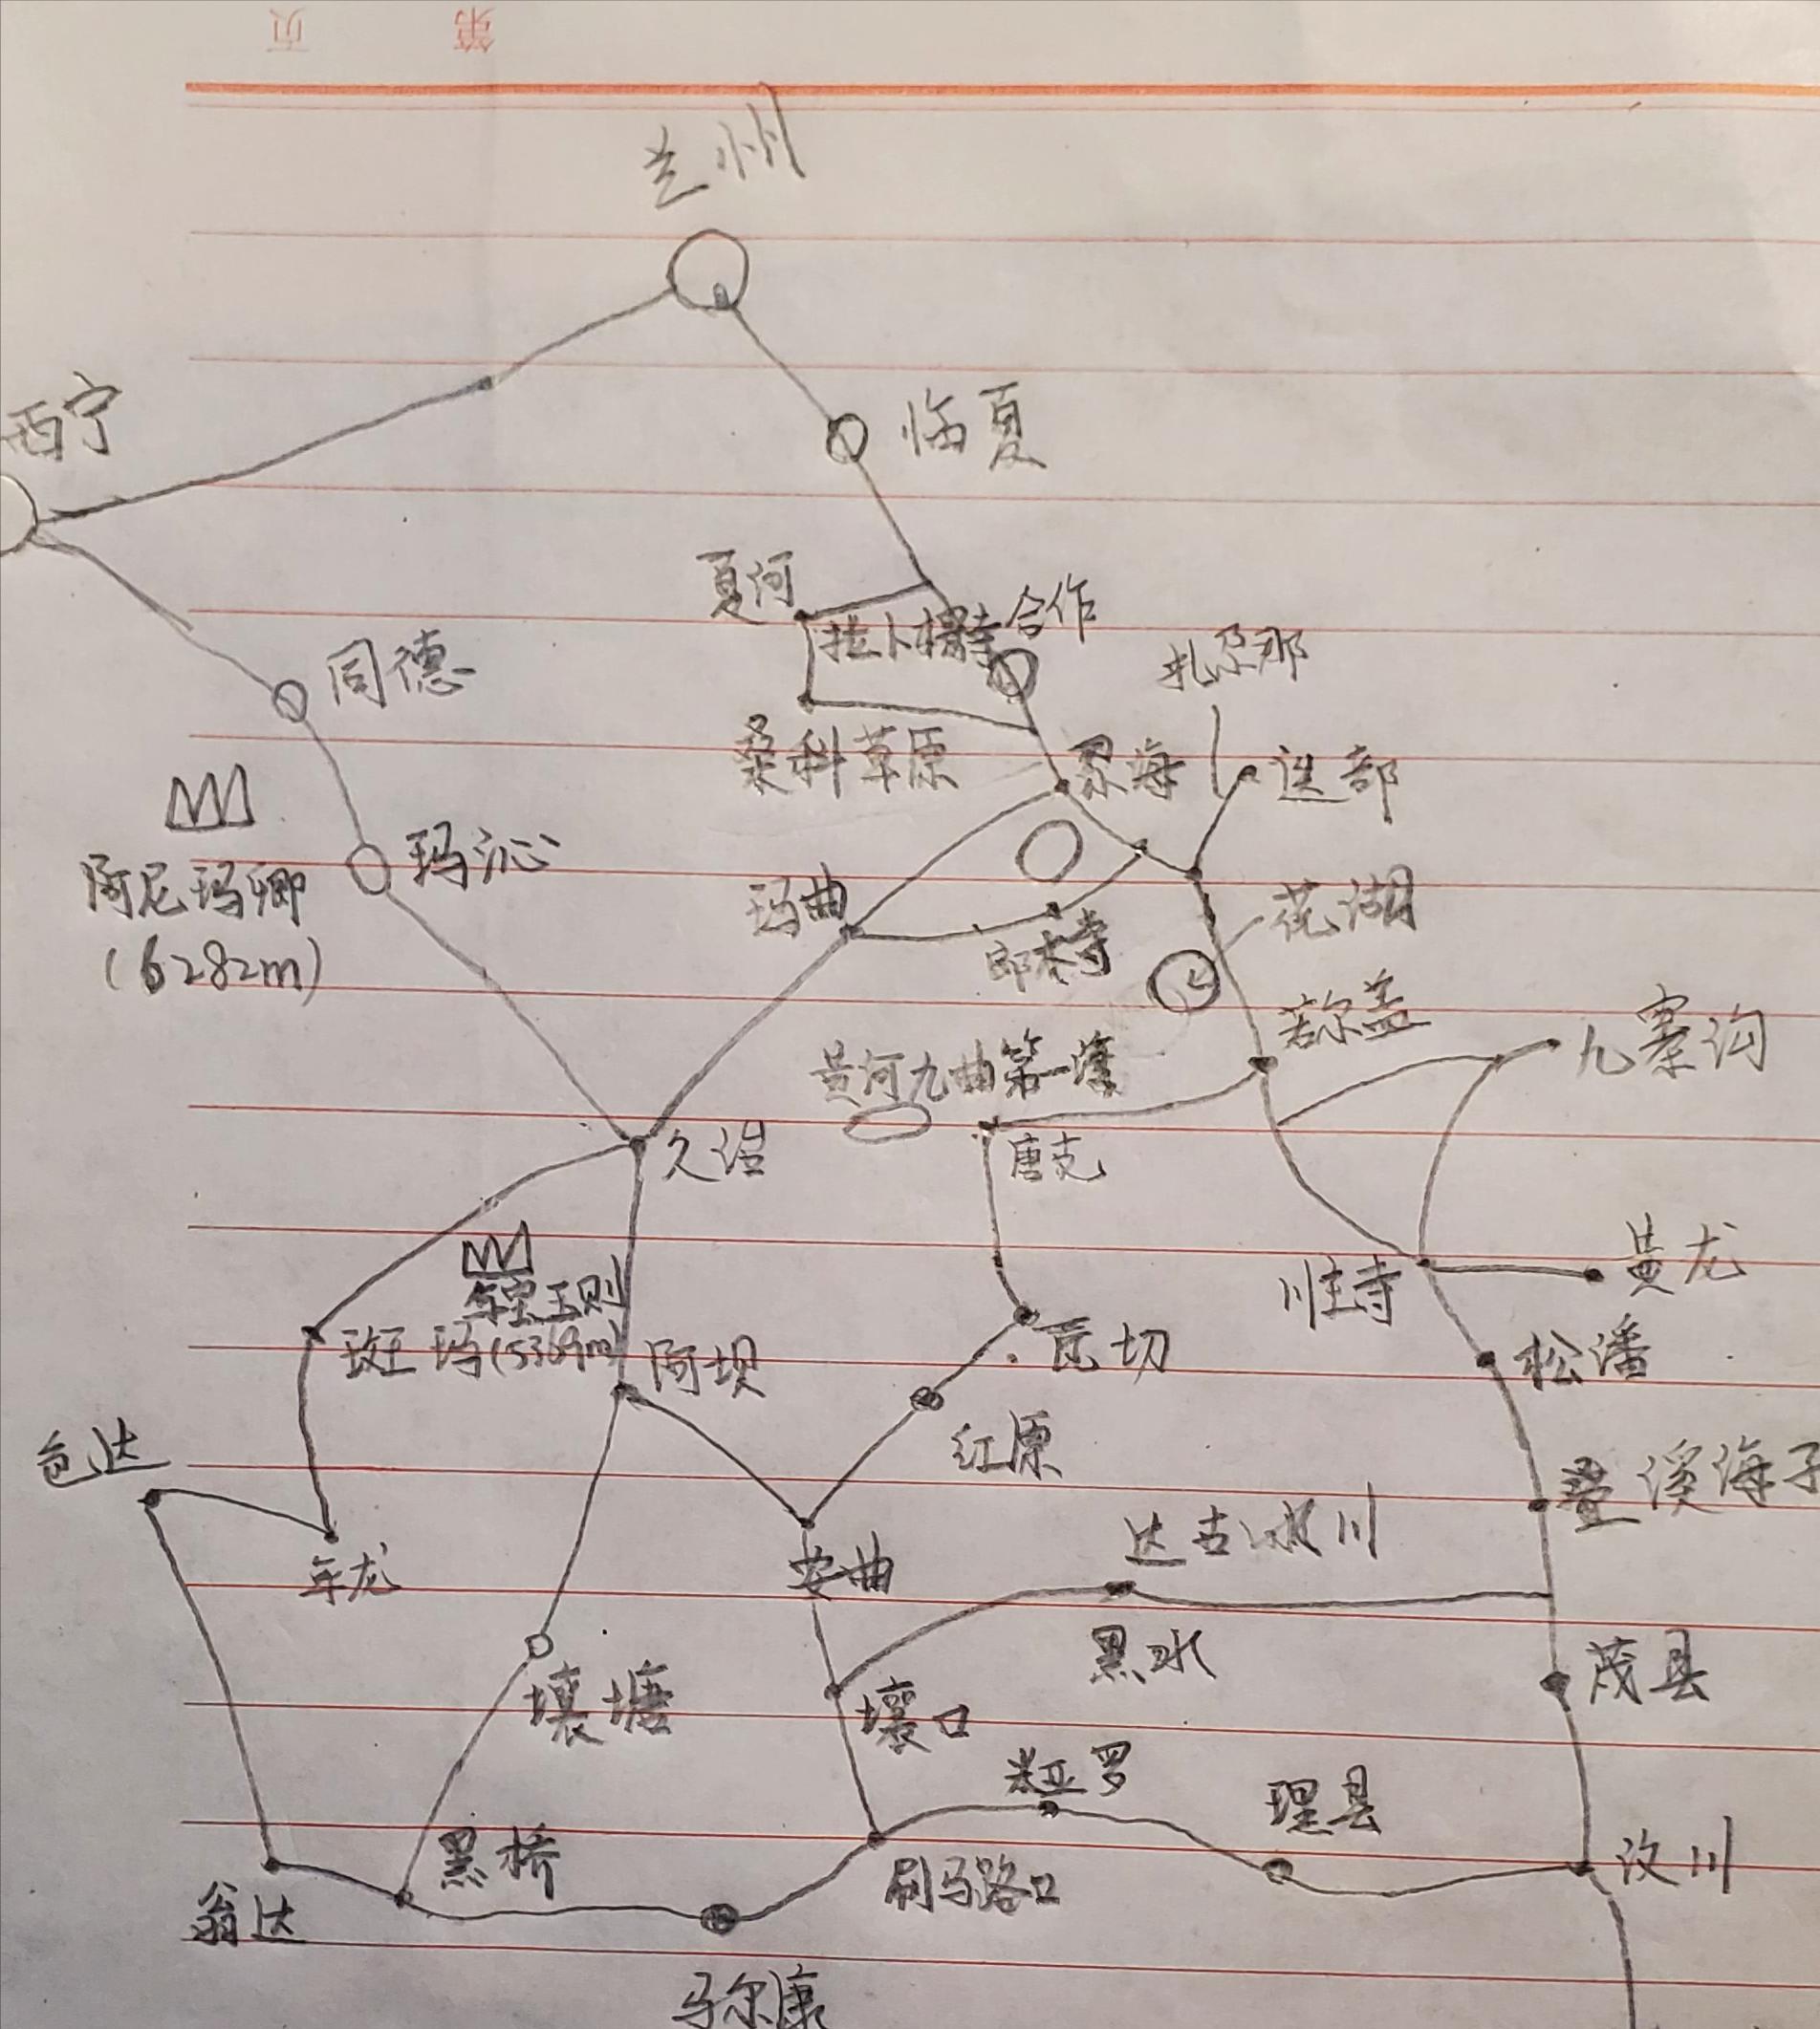 页 第
兰州
西宁
临夏
夏河
拉卜楞寺
合作
扎尕那
同德
桑科草原
尕海
迭部
玛沁
阿尼玛卿
(6282m)
玛曲
花湖
郎木寺
若尔盖
九寨沟
黄河九曲第一湾
久治
唐克
黄龙
川主寺
年宝玉则
班玛
(5369m)
阿坝
瓦切
松潘
色达
红原
叠溪海子
达古冰川
年龙
安曲
黑水
茂县
壤塘
壤口
米亚罗
理县
黑桥
汶川
刷马路口
翁达
马尔康